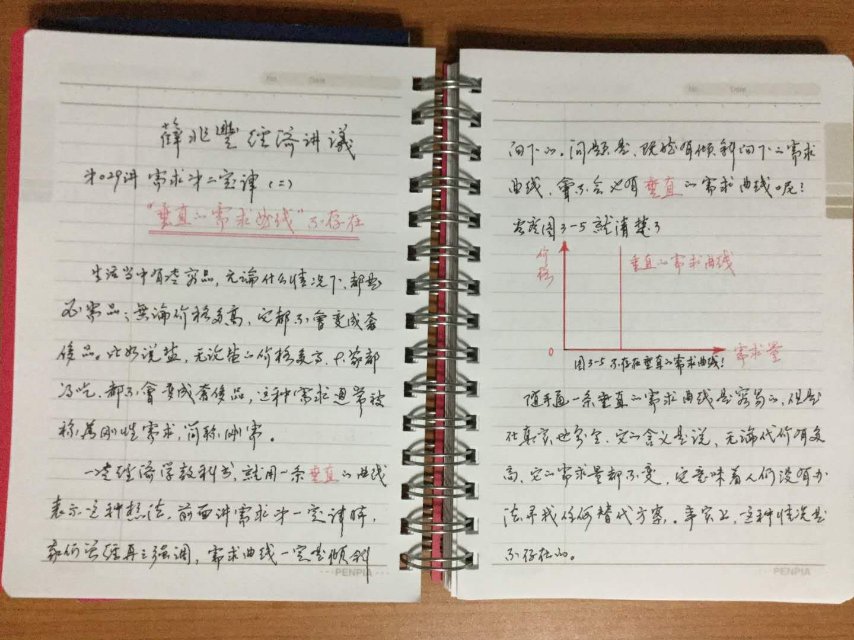 No. Date
薛兆豐经济讲议
第029讲 需求第二定律(二)
“垂直的需求曲线”不存在
生活当中有些商品,无论什么情况下,都是
必需品;無論价格多高,它都不會变成奢
侈品。比如说盐,无论盐的价格多高,大家都
得吃,都不會变成奢侈品,这种需求通常被
称為刚性需求,简称刚需。
一些经济学教科书,就用一条垂直的曲线
表示这种想法。前面讲需求第一定律时,
我们曾经再三强调,需求曲线一定是倾斜
PENPIA
No. Date
向下的。问题是,既然有倾斜向下的需求
曲线,會不会必有垂直的需求曲线呢!
去看图3-5就清楚了
价格
垂直的需求曲线
0
需求量
图3-5 不存在垂直的需求曲线!
随手画一条垂直的需求曲线是容易的,但是
在真实世界里,它的含义是说,无論代价有多
高,它的需求量都不变,它意味着人们没有办
法寻找任何替代方案。事实上,这种情况是
不存在的。
PENPIA